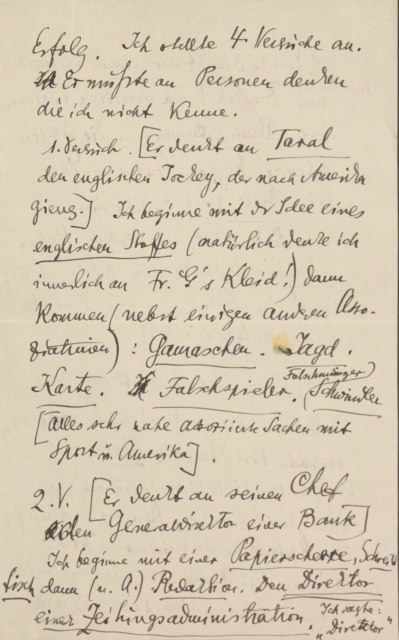 Erfolg. Ich stellte 4 Versuche an.
Er mußte an Personen denken
die ich nicht kenne.
1. Versuch. [Er denkt an Taral
den englischen Jockey, der nach Amerika
gieng.] Ich beginne mit der Idee eines
englischen Stoffes (natürlich denke ich
innerlich an Fr. G's Kleid!) dann
kommen (nebst einigen anderen Asso-
ziationen) : Gamaschen. Jagd.
Karte. Falschspieler. (Falschmünzer) (Schwindler
[Alles sehr nahe associirte Sachen mit
Sport u. Amerika].
2. V. [Er denkt an seinen Chef
den Generaldirektor einer Bank]
Ich beginne mit einer Papierscheere, Schreib
tisch dann (u. A.) Redaktion. Den Direktor
einer Zeitungsadministration. Ich sagte:
"Direktor"